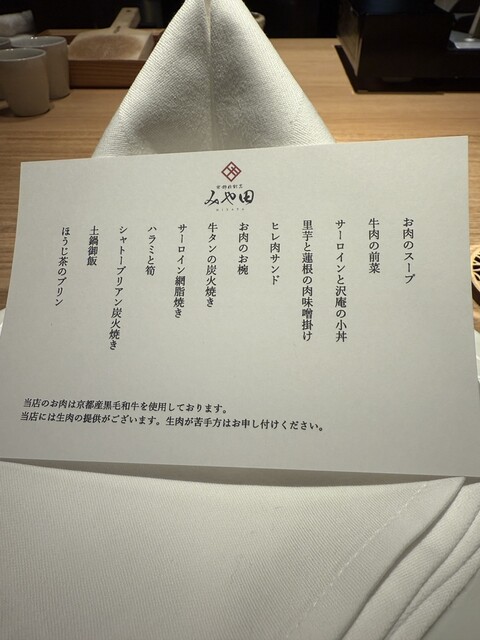 みや田
お肉のスープ
牛肉の前菜
サーロインと沢庵の小丼
里芋と蓮根の肉味噌掛け
ヒレ肉サンド
お肉のお椀
牛タンの炭火焼き
サーロイン網脂焼き
ハラミと筍
シャトーブリアン炭火焼き
土鍋御飯
ほうじ茶のプリン
当店のお肉は京都産黒毛和牛を使用しております。
当店には生肉の提供がございます。生肉が苦手方はお申し付けください。